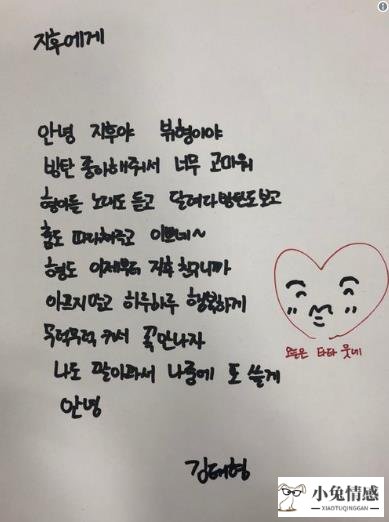 지후에게
안녕 지후야 뷔형이야
방탄 좋아해줘서 너무 고마워
형아들 노래도 듣고 달려라방탄도보고
춤도 따라춰주고 이쁘네~
형도 이제부터 지후 친구니까
아프지말고 하루하루 행복하게
무럭무럭 커서 꼭만나자
나도 팔아파서 나중에 또 쓸게
안녕
오늘은 타타 웃네
김태형
小兔情感
XIAOTUQINGGAN